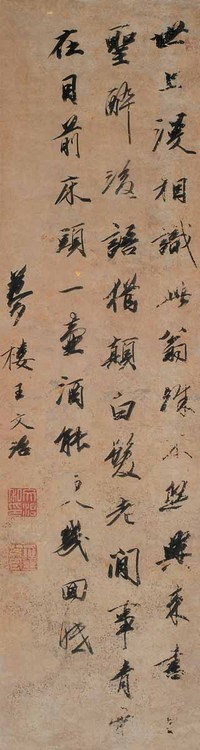 世上漫相識此翁殊不然興來書自
聖醉後語猶顛白髮老閒事青雲
在目前床頭一壺酒能更幾回眠
夢樓王文治